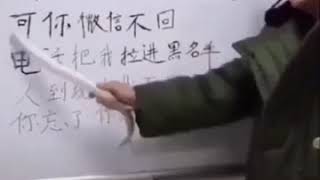 可你微信不回
电话把我拉进黑名单
人到
你忘了你